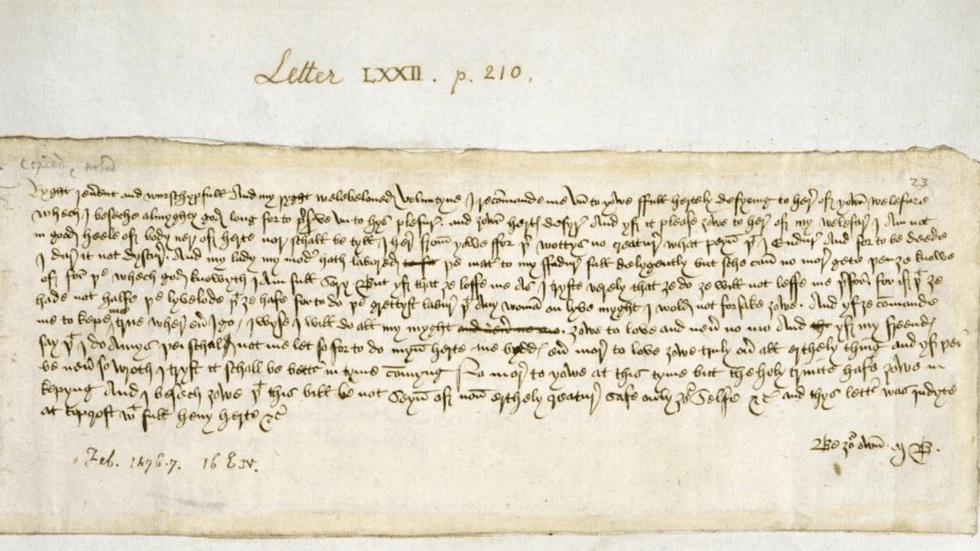 Letter LXXII. p. 210.
23
Ryght reverent and wurschypfull And my ryght welebeloued Voluntyne I recomande me vn to yowe ffull hertely desyring to here of yowr welefare
whech I beseche almyghty god long for to preserve vn to hys plesure and yowr hertes desyre And yf it please yowe to here of my welefare I am not
in good heele of body ner of herte nor schall be tyll I here from yowe ffor þer wottys no creature what peyn þat I endure And for to be deede
I dare it not dyscure And my lady my moder hath labored þe mater to my ffadure full delygently but sche can no more gete þen ȝe knowe
of for þe whech god knowyth I am full sory But yf that ȝe loffe me as I tryste verely that ȝe do ȝe will not leffe me þerfor for if þat ȝe
hade not halfe þe lyvelode þat ȝe hafe for to do þe grettyst labure þat any woman on lyve myght I wold not forsake ȝowe And yf ȝe comande
me to kepe me true wher euer I go I wyse I will do all my myght ȝowe to love and neuer no mo And yf my freendes
say þat I do Amys þei schal not me let so for to do myn herte me bydds euer more to love ȝowe truly ouer all erthely thing And yf þei
be neuer so wroth I tryst it schall be better in tyme comyng No more to yowe at this tyme but the holy trinite hafe ȝowe in
kepyng And I besech ȝowe þat this bill be not seyn of non erthely creature safe only ȝour selfe &c and thys letter was indyte
at Topcroft wt full hevy herte &c
Be ȝour own M B.
Feb. 1476-7. 16 E. IV.